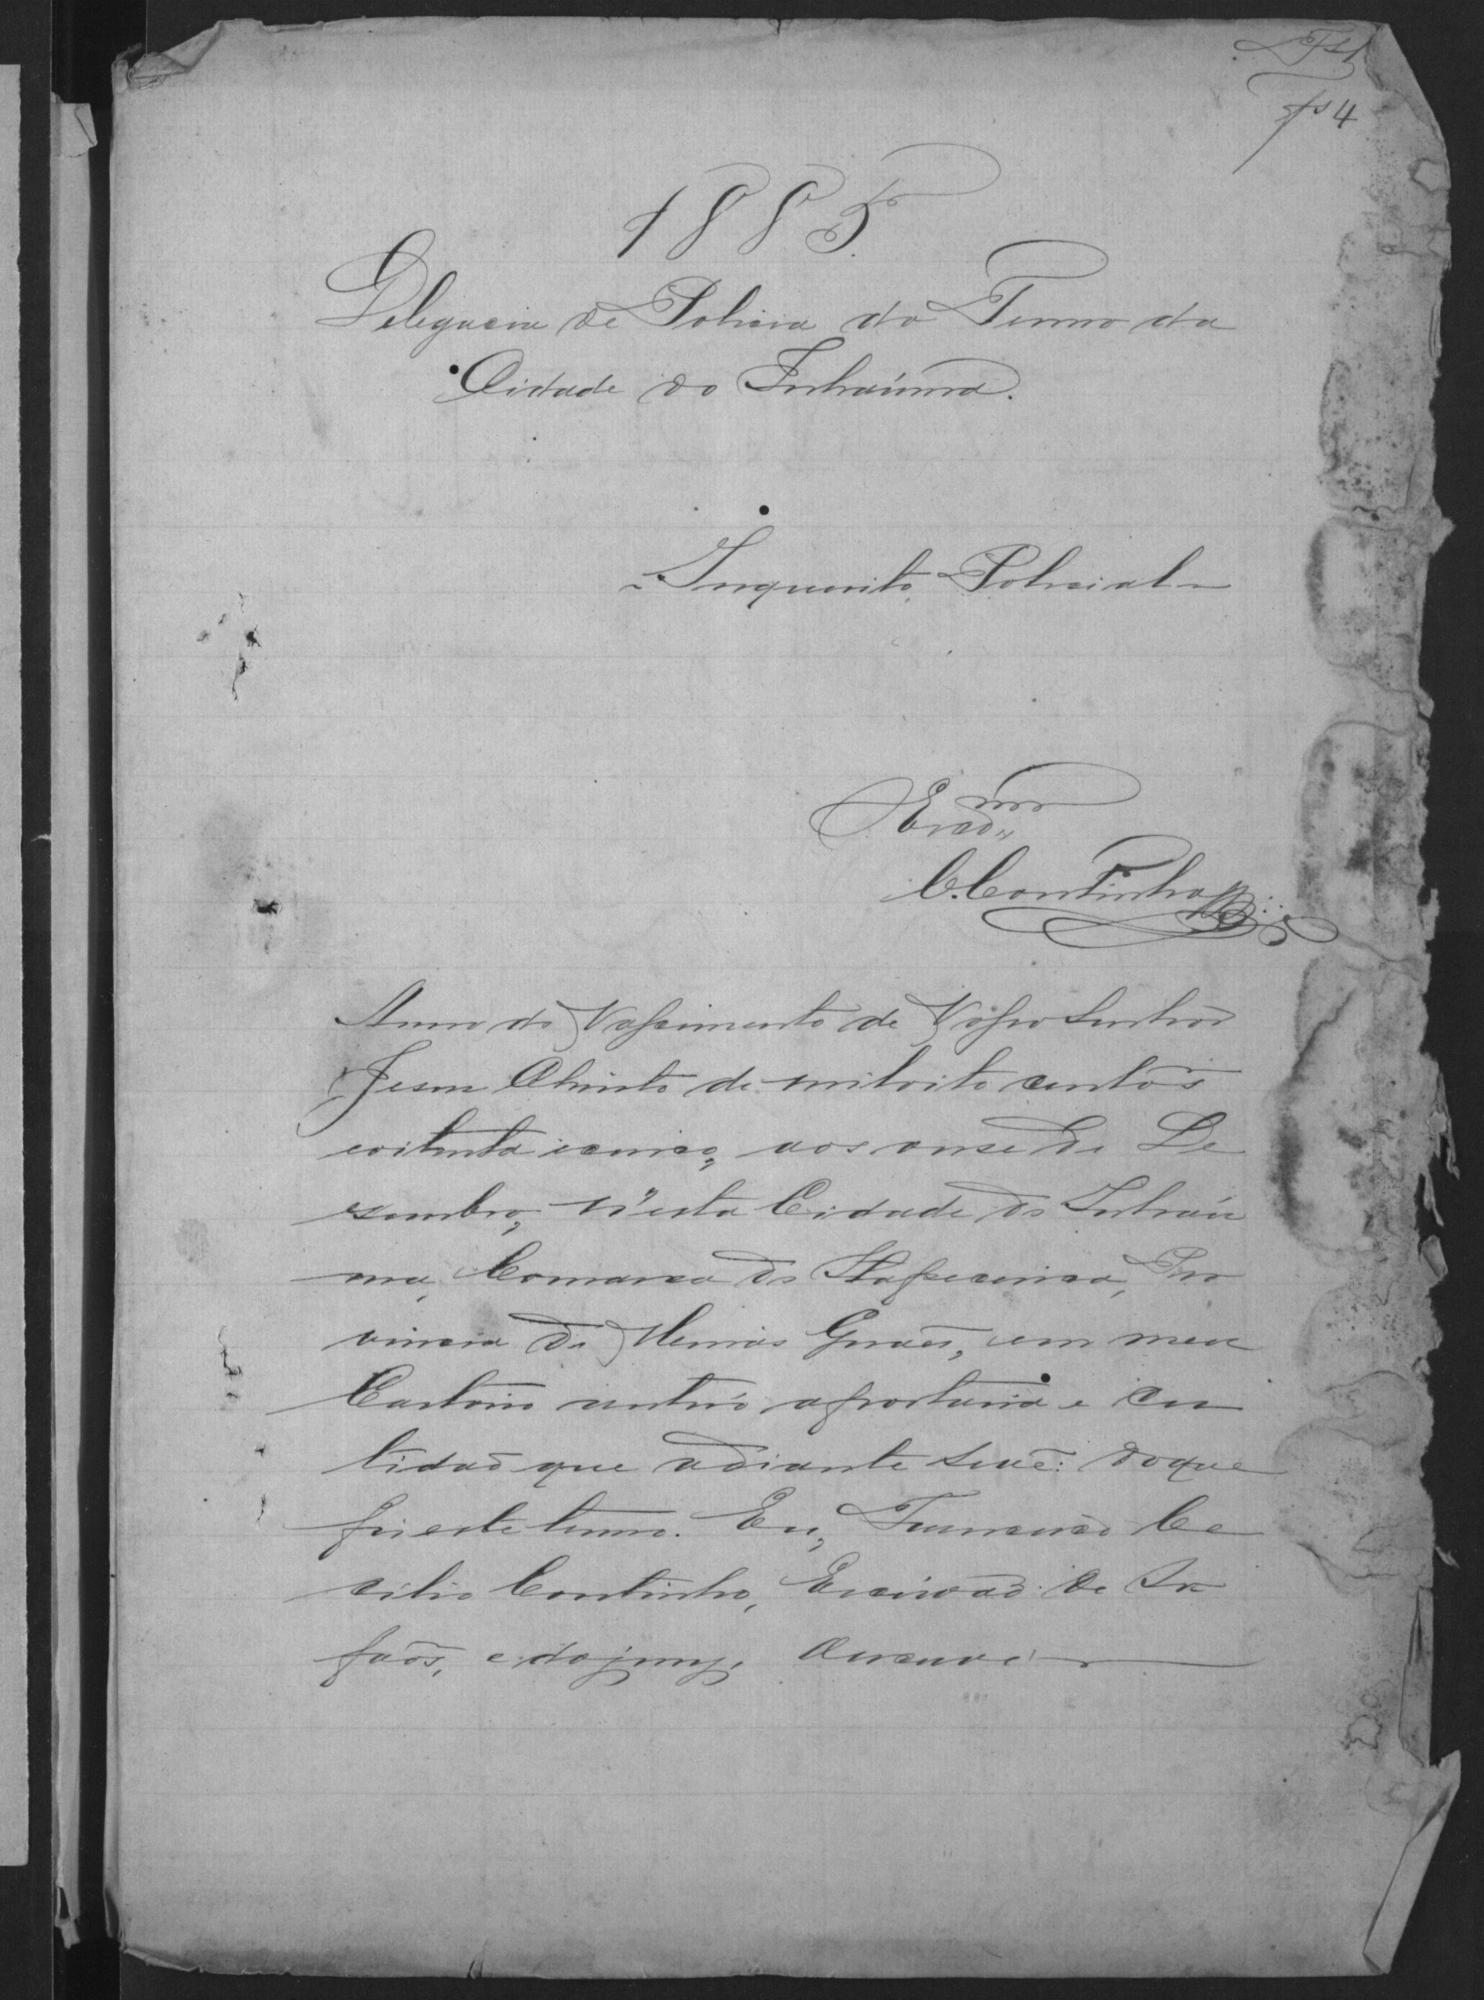 Fs 1
fs 4
1885.
Delegacia de Policia do Termo da
Cidade do Inhaúma.
Inquerito Policial
Escam
C. Coutinho
Anno do Nascimento de Nosso Senhor
Jesus Christo de mil oito centos
e oitenta e cinco, aos onse de De
zembro, n'esta Cidade do Inhaú
ma, Comarca do Itapecirica, Pro
vincia de Minas Geraes, em meu
Cartorio autúo a portaria e cer
tidaõ que adiante se vê: do que
fiz este termo. Eu, Francisco Ce
cilio Coutinho, Escrivaõ de Or
faõs, e do jury, escrevi